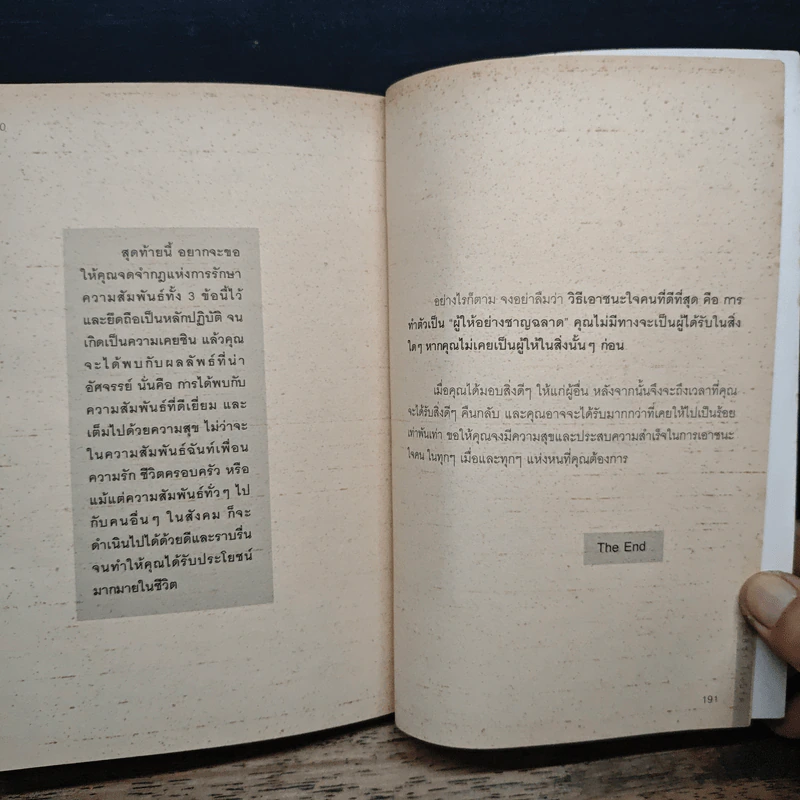 0
สุดท้ายนี้ อยากจะขอ
ให้คุณจดจำกฎแห่งการรักษา
ความสัมพันธ์ทั้ง 3 ข้อนี้ไว้
และยึดถือเป็นหลักปฏิบัติ จน
เกิดเป็นความเคยชิน แล้วคุณ
จะได้พบกับผลลัพธ์ที่น่า
อัศจรรย์ นั่นคือ การได้พบกับ
ความสัมพันธ์ที่ดีเยี่ยม และ
เต็มไปด้วยความสุข ไม่ว่าจะ
ในความสัมพันธ์ฉันท์เพื่อน
ความรัก ชีวิตครอบครัว หรือ
แม้แต่ความสัมพันธ์ทั่วๆ ไป
กับคนอื่นๆ ในสังคม ก็จะ
ดำเนินไปได้ด้วยดีและราบรื่น
จนทำให้คุณได้รับประโยชน์
มากมายในชีวิต
อย่างไรก็ตาม จงอย่าลืมว่า วิธีเอาชนะใจคนที่ดีที่สุด คือ การ
ทำตัวเป็น "ผู้ให้อย่างชาญฉลาด" คุณไม่มีทางจะเป็นผู้ได้รับในสิ่ง
ใดๆ หากคุณไม่เคยเป็นผู้ให้ในสิ่งนั้นๆ ก่อน
เมื่อคุณได้มอบสิ่งดีๆ ให้แก่ผู้อื่น หลังจากนั้นจึงจะถึงเวลาที่คุณ
จะได้รับสิ่งดีๆ คืนกลับ และคุณอาจจะได้รับมากกว่าที่เคยให้ไปเป็นร้อย
เท่าพันเท่า ขอให้คุณจงมีความสุขและประสบความสำเร็จในการเอาชนะ
ใจคน ในทุกๆ เมื่อและทุกๆ แห่งหนที่คุณต้องการ
The End
191